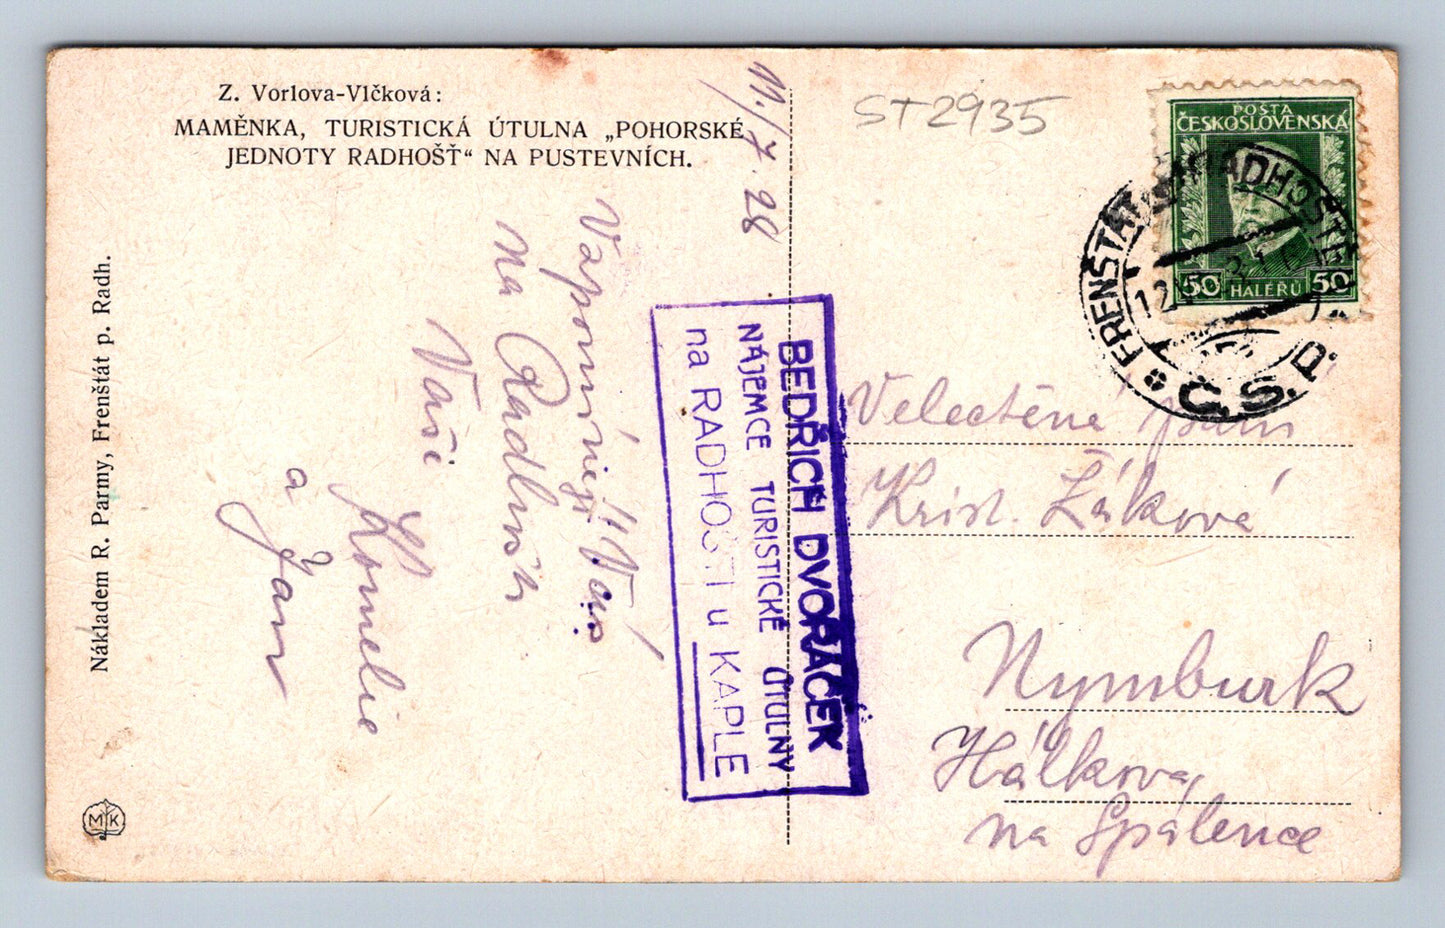 Z. Vorlova-Vlčková:
MAMĚNKA, TURISTICKÁ ÚTULNA „POHORSKÉ
JEDNOTY RADHOŠŤ“ NA PUSTEVNÍCH.
Nákladem R. Parmy, Frenštát p. Radh.
MK
11./7. 28
Vzpomínají Vás
na Radhošti
Vaši
Kornelie
a Jan
BEDŘICH DVOŘÁČEK
NÁJEMCE TURISTICKÉ ÚTULNY
na RADHOŠTI u KAPLE
ST2935
POŠTA
ČESKOSLOVENSKÁ
50 HALÉŘŮ 50
FRENŠTÁT RADHOŠTĚM
Č.S.P.
Velectěná paní
Krist. Žáková
Nymburk
Hálkova,
na Spálence